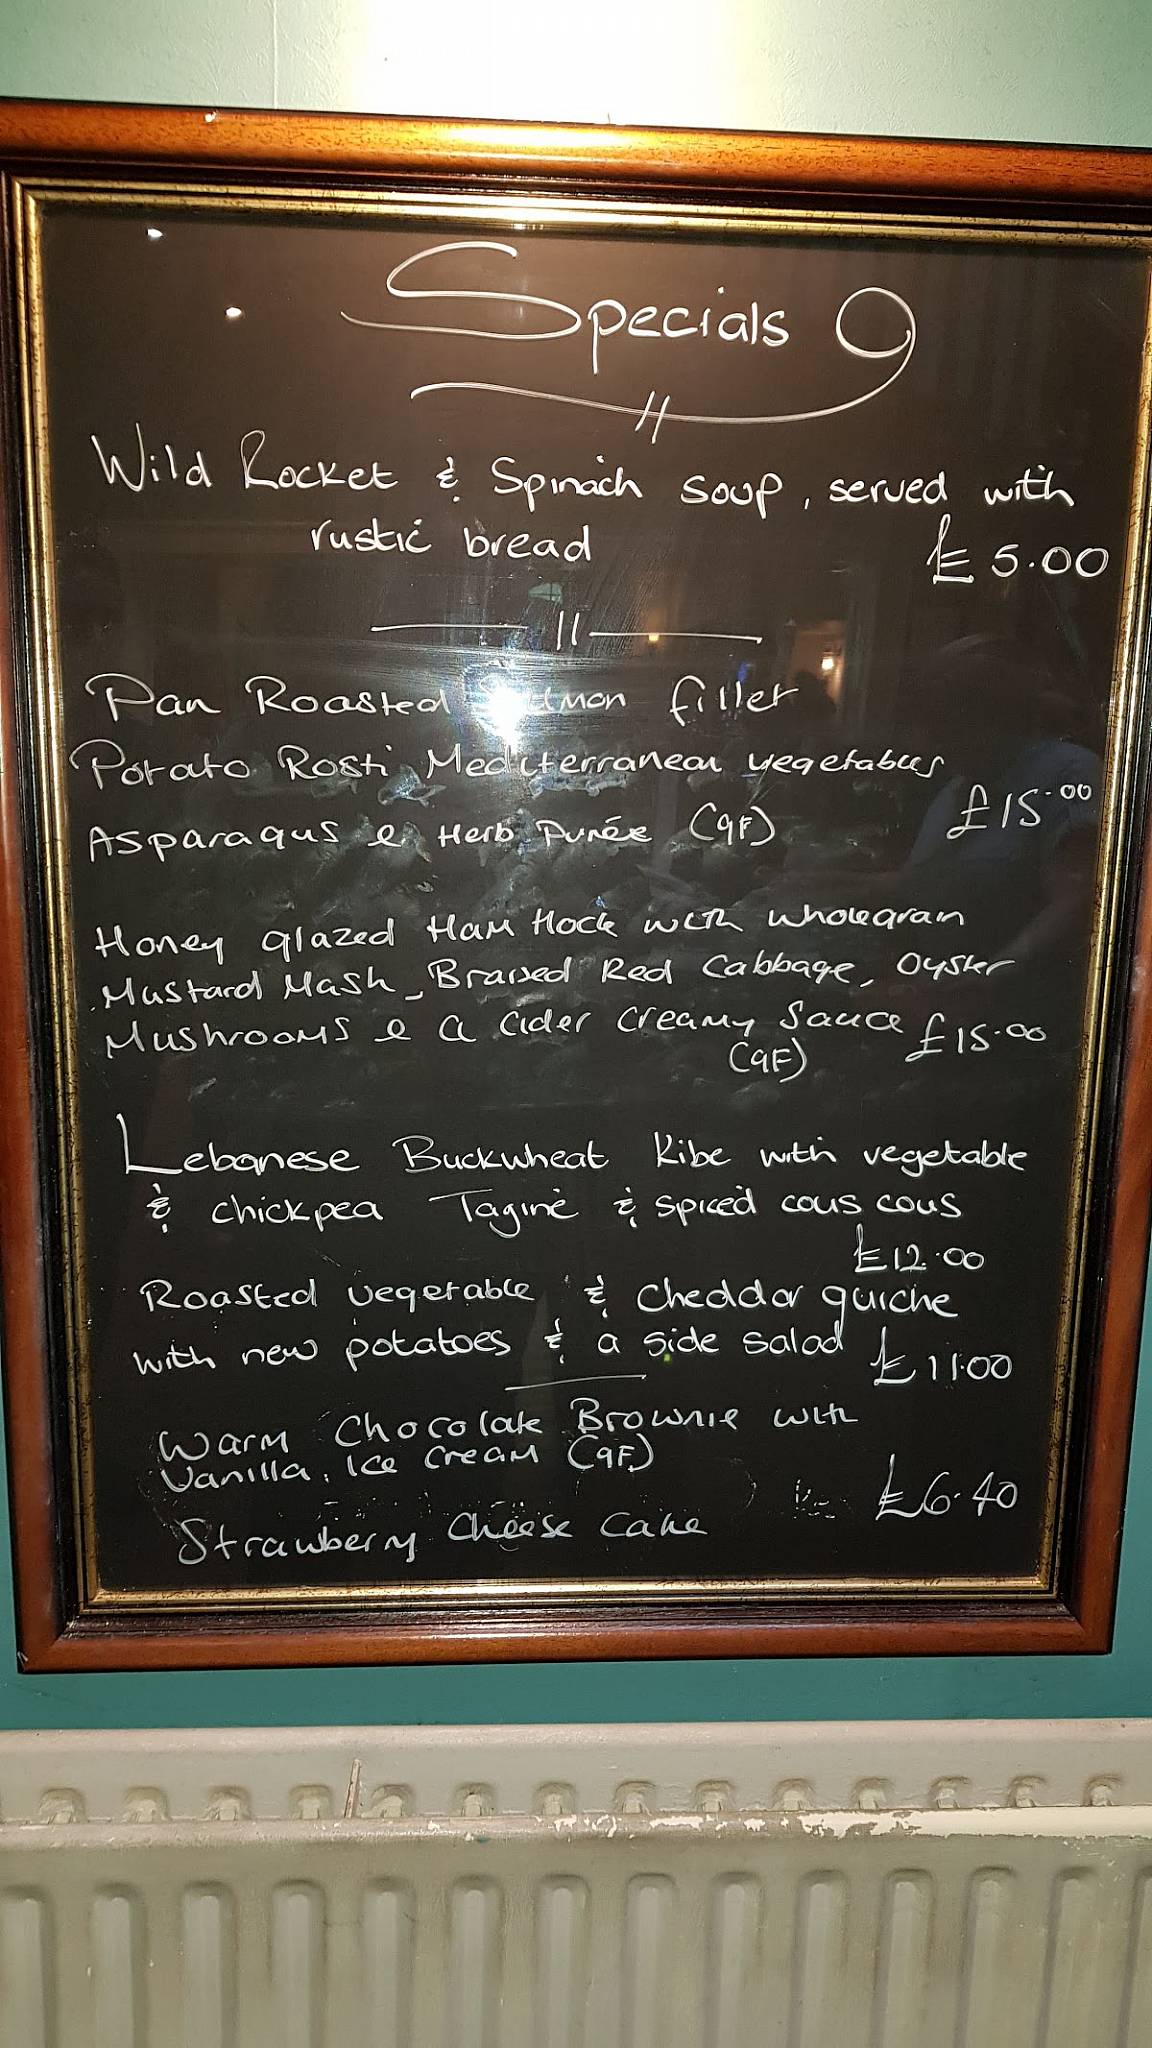 Specials
Wild Rocket & Spinach soup, served with
rustic bread
£ 5.00
Pan Roasted Salmon fillet
Potato Rosti, Mediterranean vegetables
Asparagus & Herb Purée (GF)
£15.00
Honey glazed Ham Hock with wholegrain
Mustard Mash, Braised Red Cabbage, Oyster
Mushrooms & a Cider Creamy Sauce £15.00
(GF)
Lebanese Buckwheat Kibe with vegetable
& chickpea Tagine & spiced cous cous
£12.00
Roasted vegetable & cheddar quiche
with new potatoes & a side salad £11.00
Warm Chocolate Brownie with
Vanilla, Ice Cream (GF)
£6.40
Strawberry Cheese Cake